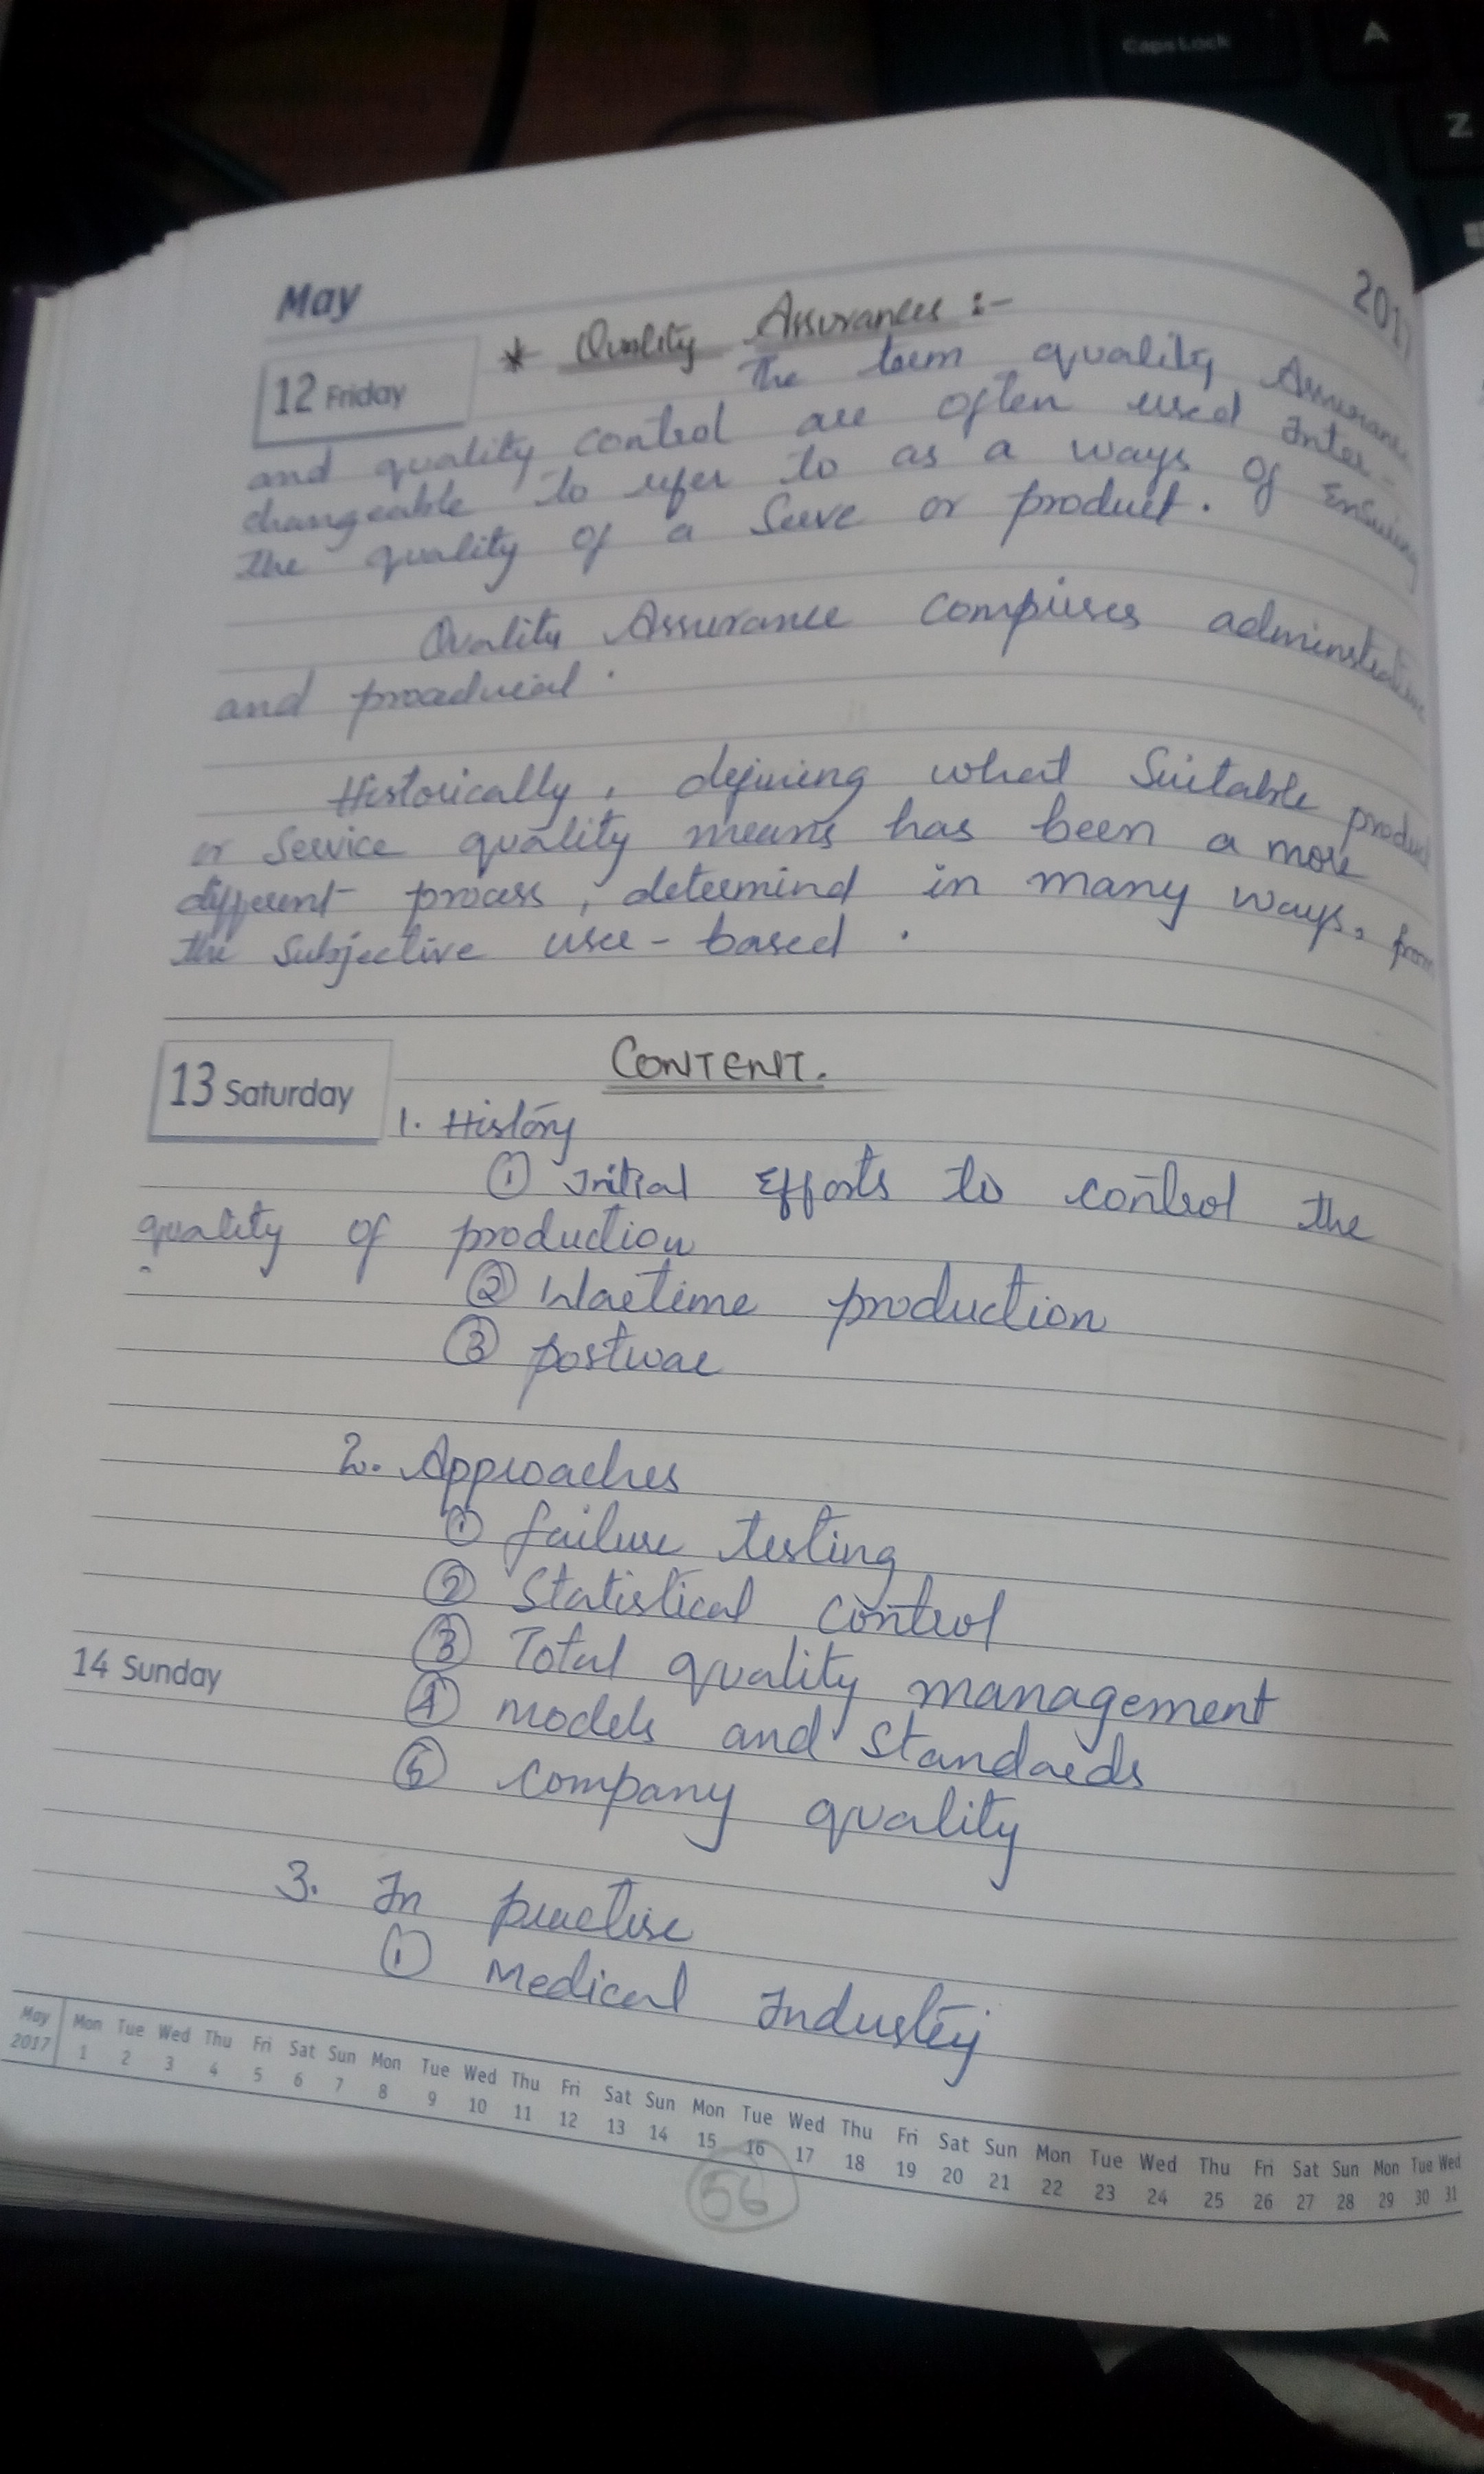 Caps Lock
A
Z
May
2017
12 Friday
* Quality Assurances :-
The term quality Assurance
and quality control are often used Inter-
changeable to refer to as a ways of Ensuring
the quality of a Serve or product.
Quality Assurance comprises adminstrative
and proaducial.
Historically, defining what Suitable product
or Service quality means has been a more
different process, determind in many ways, from
the Subjective user-based.
13 Saturday
CONTENT.
1. History
① Initial Efforts to control the
quality of production
② Wartime production
③ postwar
2. Approaches
① failure testing
② Statistical control
③ Total quality management
14 Sunday
④ models and Standards
⑤ company quality
3. In practise
① Medical Industry
May Mon Tue Wed Thu Fri Sat Sun Mon Tue Wed Thu Fri Sat Sun Mon Tue Wed Thu Fri Sat Sun Mon Tue Wed Thu Fri Sat Sun Mon Tue Wed
2017 1 2 3 4 5 6 7 8 9 10 11 12 13 14 15 16 17 18 19 20 21 22 23 24 25 26 27 28 29 30 31
56